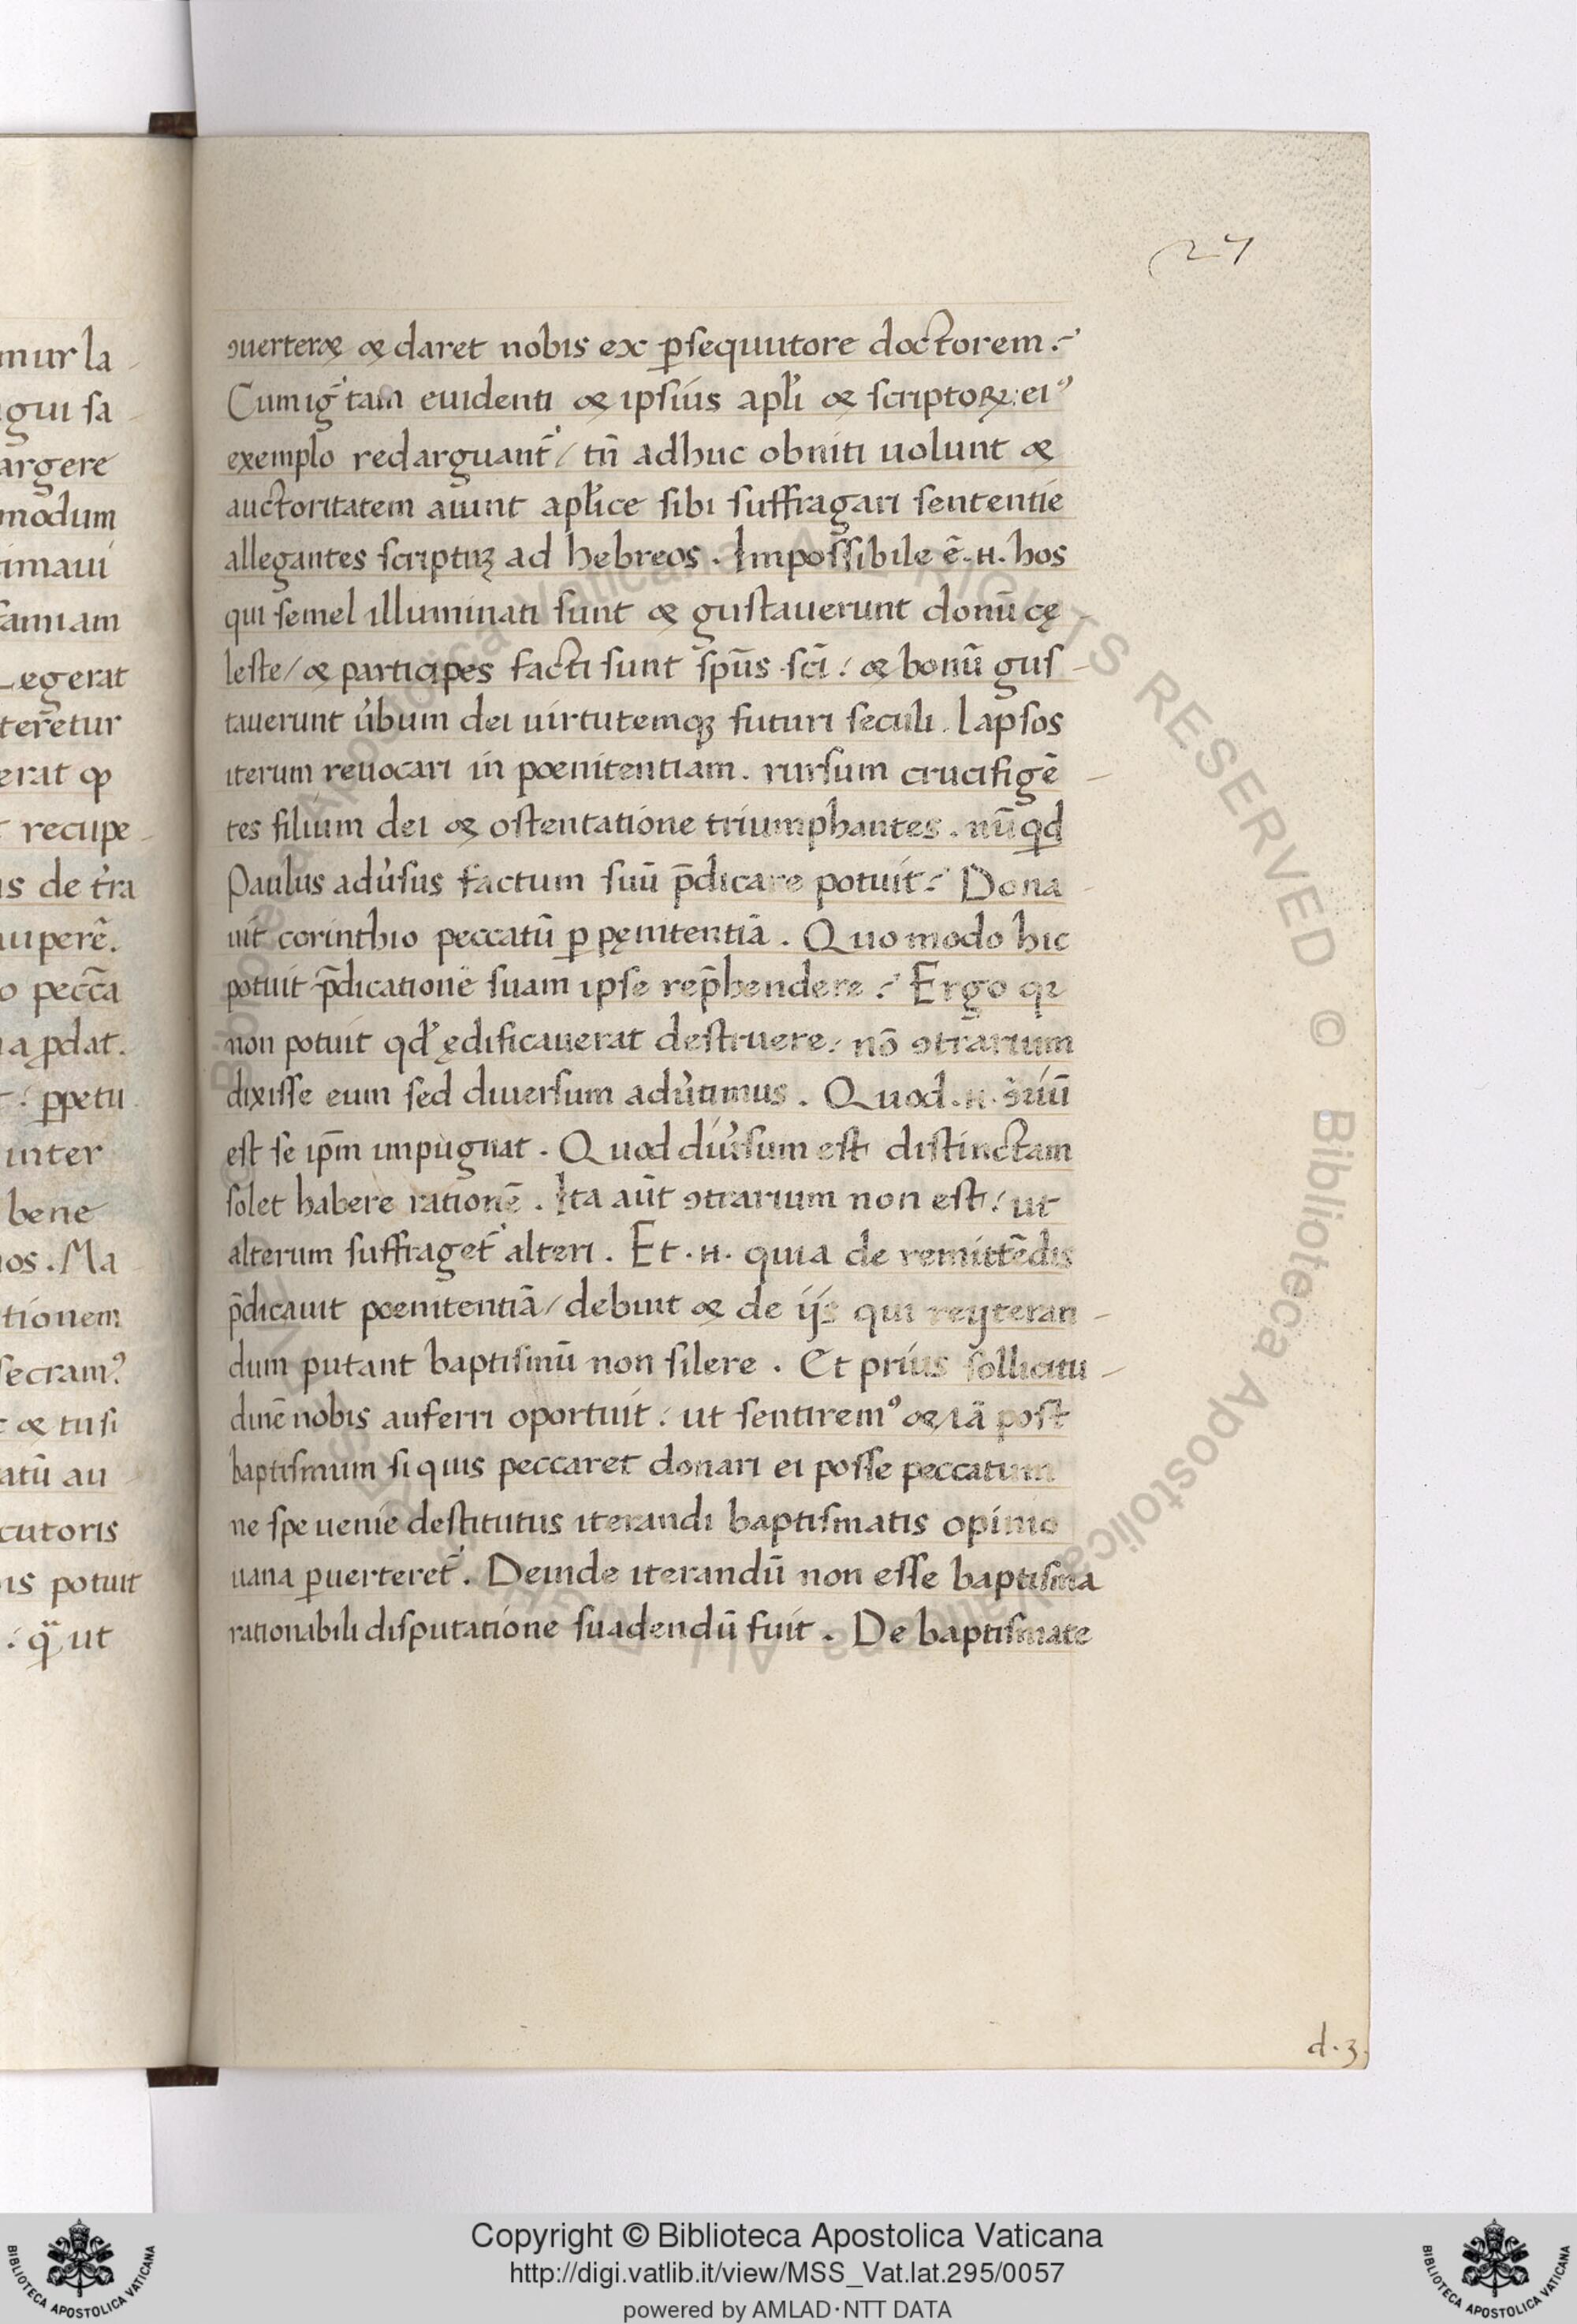 27
mur la
gui sa
argere
modum
timaui
saniam
Legerat
teretur
erat ꝙ
recupe
is de t̉ra
uiperē.
o pecc̄a
ia ꝓdat.
ꝑpetu
inter
bene
os. Ma
tionem
secram⁹
⁊ tu si
atū au
cutoris
is potuit
: q̈ ut
ꝯuerteret & daret nobis ex ꝑsequutore doctorem.
Cum ig̃ tam euidenti & ipsius apl̃i & scriptoꝝ: ei⁹
exemplo redarguant̃/ tn̄ adhuc obniti uolunt &
auctoritatem aiunt apl̃ice sibi suffragari sententie
allegantes scriptuꝫ ad hebreos. Impossibile ē. n. hos
qui semel illuminati sunt & gustauerunt donū cę
leste/ & participes facti sunt sp̄us sc̄i: & bonū gus
tauerunt u̓bum dei uirtutemqꝫ futuri seculi. lapsos
iterum reuocari in poenitentiam. rursum crucifigē
tes filium dei & ostentatione triumphantes. nū qd
Paulus adu̓sus factum suū p̄dicare potuit? Dona
uit corinthio peccatū ꝑ pęnitentiā. Quo modo hic
potuit p̄dicationē suam ipse rep̄hendere? Ergo qꝛ
non potuit qd̓ ędificauerat destruere: nō ꝯtrarium
dixisse eum sed diuersum adu̓timus. Quod. n. ꝯ̓riū
est se ip̄m impugnat. Quod diu̓sum est distinctam
solet habere rationē. Ita aūt ꝯtrarium non est: ut
alterum suffraget̃ alteri. Et. n. quia de remittēdis
p̄dicauit poenitentiā/ debuit & de ijs qui reijteran
dum putant baptismū non silere. Et prius sollicitu
dinē nobis auferri oportuit: ut sentirem⁹ & iā post
baptismum si quis peccaret donari ei posse peccatum
ne spe uenie destitutus iterandi baptismatis opinio
uana ꝑuerteret̃. Deinde iterandū non esse baptisma
rationabili disputatione suadendū fuit. De baptismate
d. 3.
Copyright © Biblioteca Apostolica Vaticana
http://digi.vatlib.it/view/MSS_Vat.lat.295/0057
powered by AMLAD·NTT DATA
BIBLIOTECA APOSTOLICA VATICANA
BIBLIOTECA APOSTOLICA VATICANA